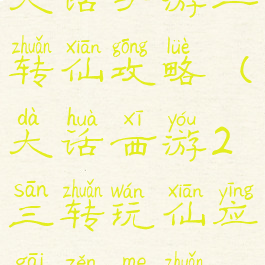 zhuǎn xiān gōng lüè
转仙攻略（
dà huà xī yóu
大话西游2
sān zhuǎn wán xiān yīng
三转玩仙应
gāi zěn me zhuǎn